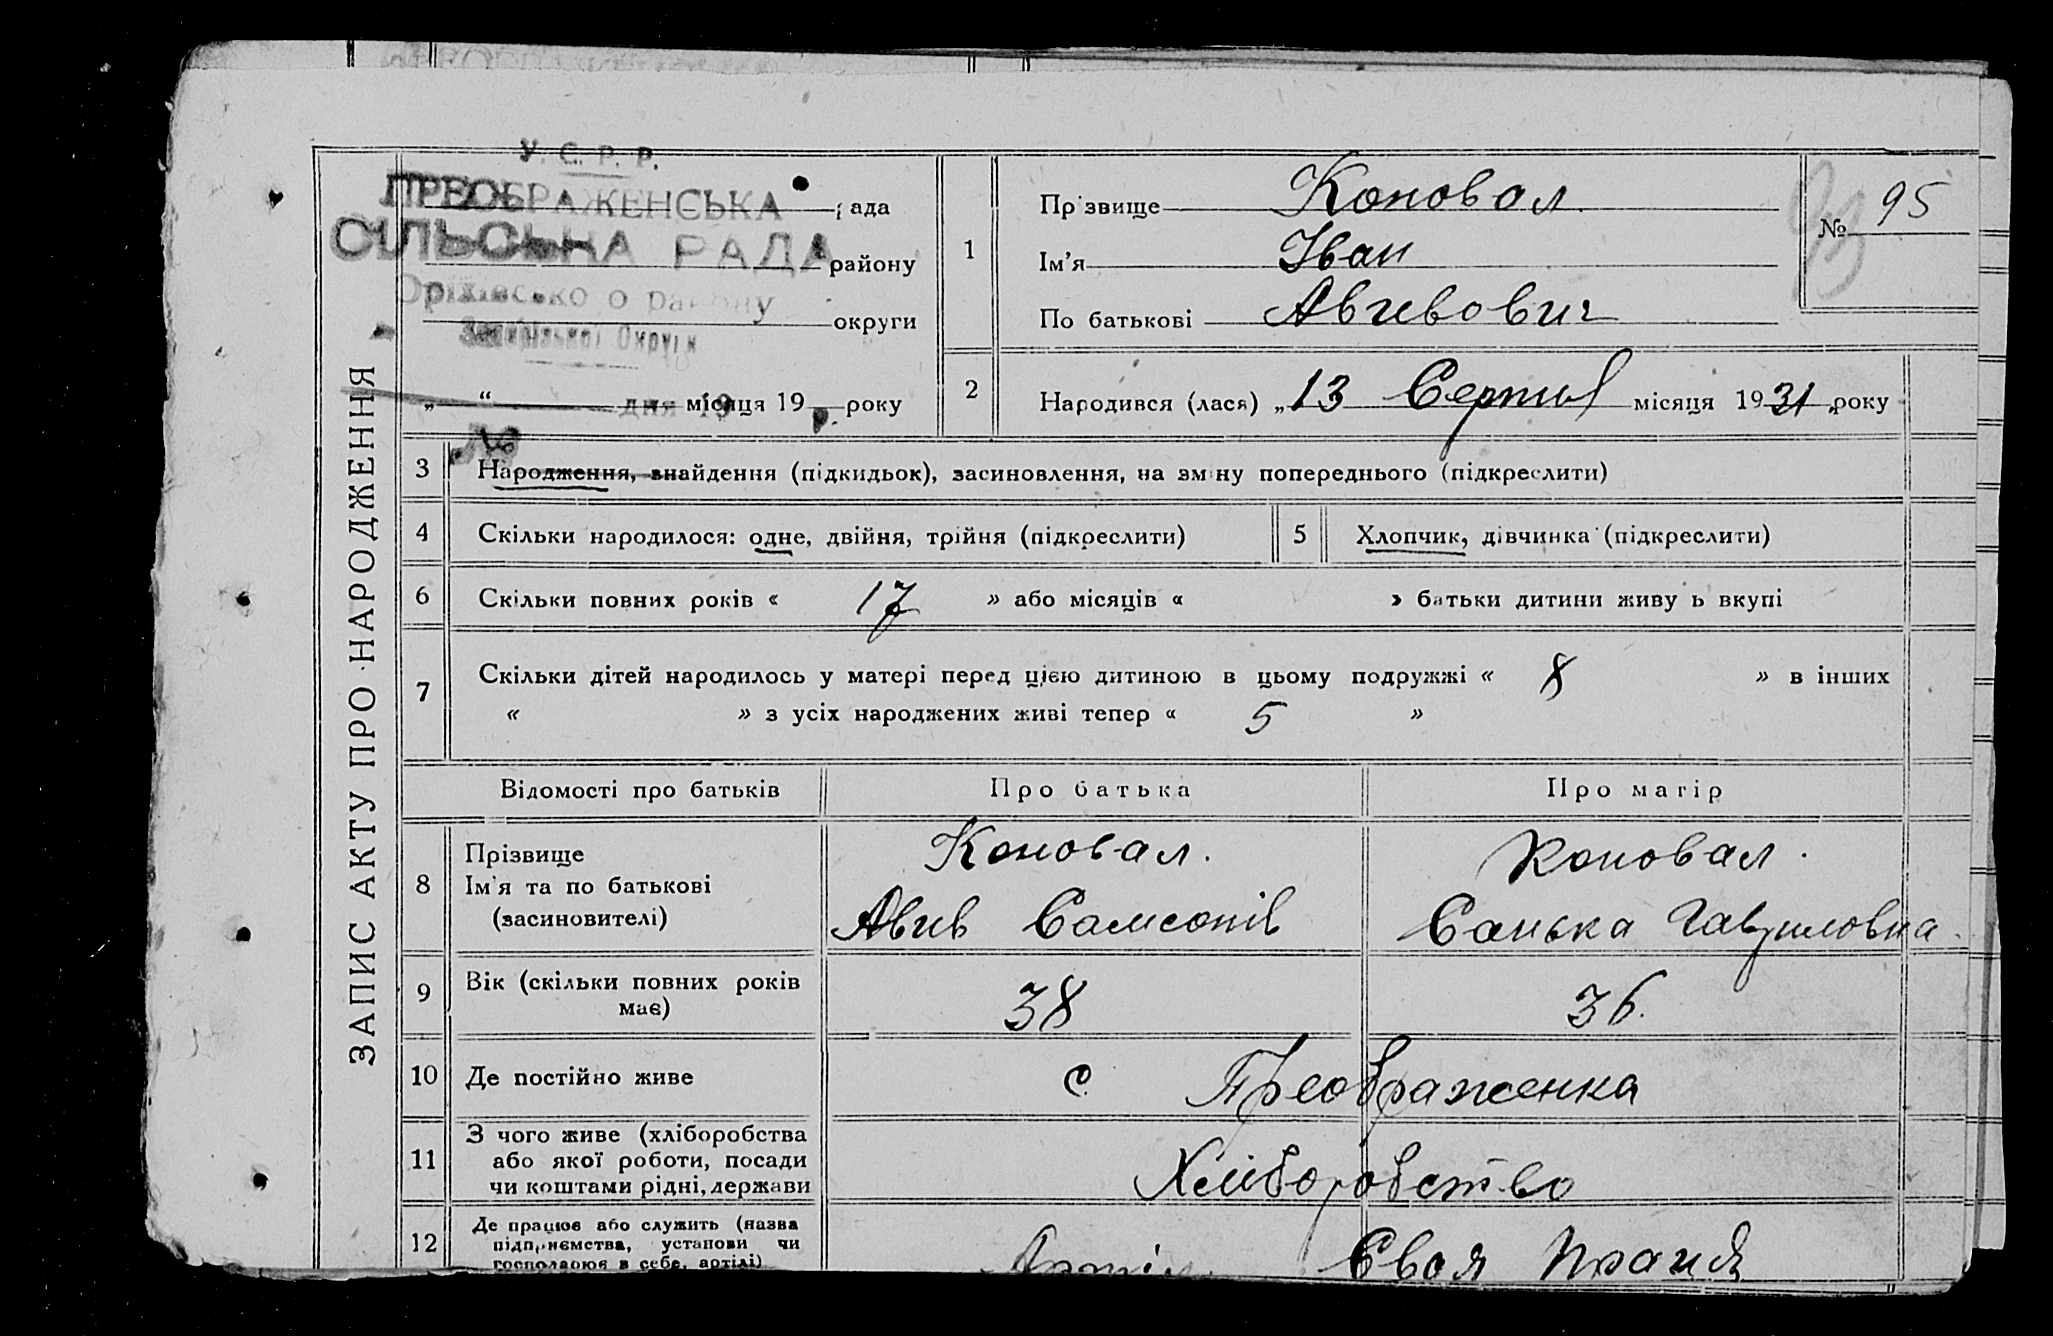 У. С. Р. Р.
ПРЕОБРАЖЕНСЬКА рада
СІЛЬСЬКА РАДА району
Оріхівського району
Запорізької Округи округи
„ “ дня місяця 19 року
№
ЗАПИС АКТУ ПРО НАРОДЖЕННЯ
1 Прізвище Коновал
Ім’я Іван
По батькові Авивович
№ 95
2 Народився (лася) „13 Серпня місяця 1931 року
3 Народження, знайдення (підкидьок), засиновлення, на зміну попереднього (підкреслити)
4 Скільки народилося: одне, двійня, трійня (підкреслити) 5 Хлопчик, дівчинка (підкреслити)
6 Скільки повних років « 17 » або місяців « » батьки дитини живуть вкупі
7 Скільки дітей народилось у матері перед цією дитиною в цьому подружжі « 8 » в інших
« » з усіх народжених живі тепер « 5 »
Відомості про батьків Про батька Про матір
8 Прізвище Коновал. Коновал.
Ім’я та по батькові Авив Самсонів Санька Гавриловна
(засиновителі)
9 Вік (скільки повних років має) 38 36.
10 Де постійно живе с. Преображенка
11 З чого живе (хліборобства
або якої роботи, посади Хліборобство
чи коштами рідні, держави
12 Де працює або служить (назва
підприємства, установи чи Своя
господарює в себе, артілі)